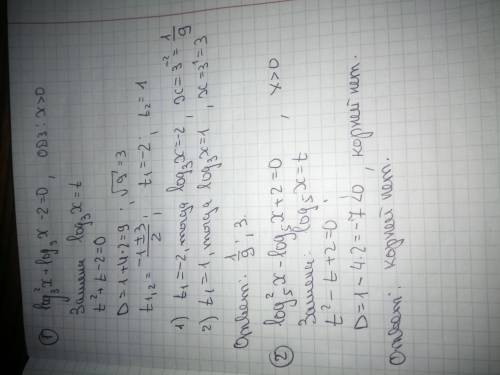 ① log₃²x + log₃x - 2 = 0, ОДЗ: x>0
Замена log₃x = t
t² + t - 2 = 0
D = 1 + 4·2 = 9; √9 = 3
t₁,₂ = (-1 ± 3)/2; t₁ = -2; t₂ = 1
1) t₁ = -2, тогда log₃x = -2, x = 3⁻² = 1/9
2) t₁ = 1, тогда log₃x = 1, x = 3¹ = 3
Ответ: 1/9; 3.
② log₅²x - log₅x + 2 = 0, x>0
Замена: log₅x = t
t² - t + 2 = 0;
D = 1 - 4·2 = -7 < 0, корней нет.
Ответ: корней нет.